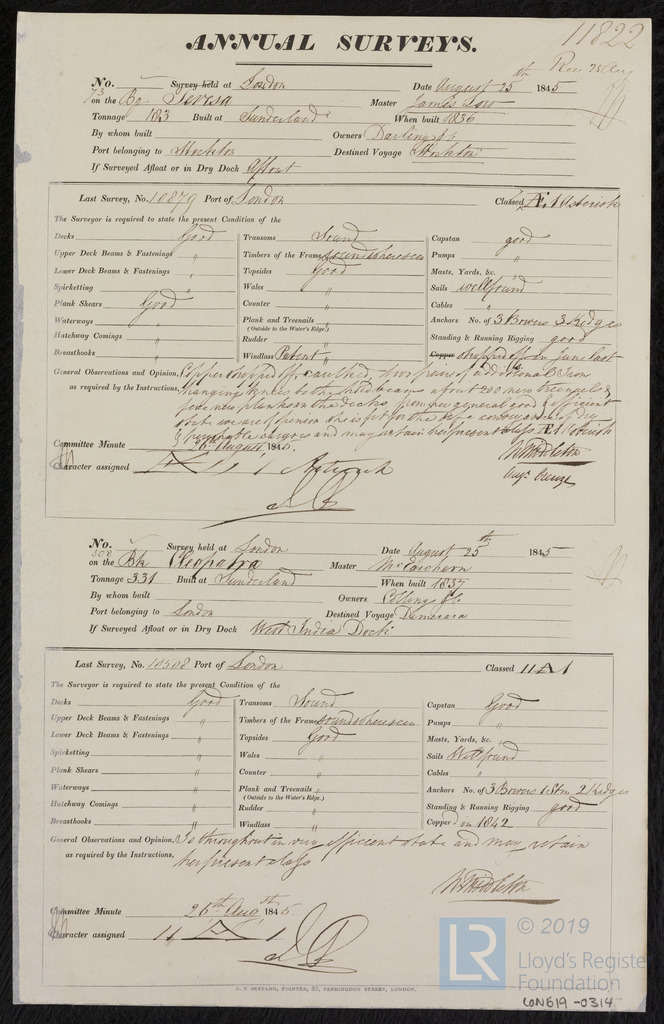 11822
ANNUAL SURVEYS.
No. 73 Survey held at London Date August 25th 1845
on the Bg. Teresa Master James Low
Tonnage 183 Built at Sunderland When built 1836
By whom built Owners Darling & Co.
Port belonging to Stockton Destined Voyage Stockton
If Surveyed Afloat or in Dry Dock Afloat
Last Survey, No. 10879 Port of London Classed Æ 1 Asterisk
The Surveyor is required to state the present Condition of the
Decks Good Transoms Sound Capstan good
Upper Deck Beams & Fastenings " Timbers of the Frame sound where seen Pumps "
Lower Deck Beams & Fastenings " Topsides Good Masts, Yards, &c. "
Spirketting " Wales " Sails well found
Plank Shears Good Counter " Cables "
Waterways " Plank and Treenails " Anchors No. of 3 Bowers 3 Kedges
(Outside to the Water's Edge.)
Hatchway Comings " Rudder " Standing & Running Rigging good
Breasthooks " Windlass Patent Copper stripped off in June last
General Observations and Opinion, Copper stripped off, caulked, two pairs of additional Iron
as required by the Instructions, hanging knees to the hold beams about 200 new treenails &
new planks in the decks, from her general good & efficient
state we are of opinion she is fit for the safe conveyance of dry
& perishable cargoes and may retain her present class Æ 1 Asterisk
Committee Minute 26th August 1845.
W Middleton
Character assigned Æ 1 Asterisk
No. 508 Survey held at London Date August 25th 1845
on the Bk Cleopatra Master McEachern
Tonnage 331 Built at Sunderland When built 1837
By whom built Owners Collings & Co.
Port belonging to London Destined Voyage Demerara
If Surveyed Afloat or in Dry Dock West India Dock
Last Survey, No. 10508 Port of London Classed 11 A 1
The Surveyor is required to state the present Condition of the
Decks Good Transoms Sound Capstan Good
Upper Deck Beams & Fastenings " Timbers of the Frame sound where seen Pumps "
Lower Deck Beams & Fastenings " Topsides Good Masts, Yards, &c. "
Spirketting " Wales " Sails Well found
Plank Shears " Counter " Cables "
Waterways " Plank and Treenails " Anchors No. of 3 Bowers 1 Strm 2 Kedges
(Outside to the Water's Edge.)
Hatchway Comings " Rudder " Standing & Running Rigging good
Breasthooks " Windlass " Copper'd in 1842
General Observations and Opinion, Is throughout in very efficient state and may retain
as required by the Instructions, her present class
W Middleton
Committee Minute 26th Augst 1845
Character assigned 11 A 1
C. F. SEYFANG, PRINTER, 57, FARRINGDON STREET, LONDON.
LR © 2019
Lloyd's Register
Foundation
LON619-0314